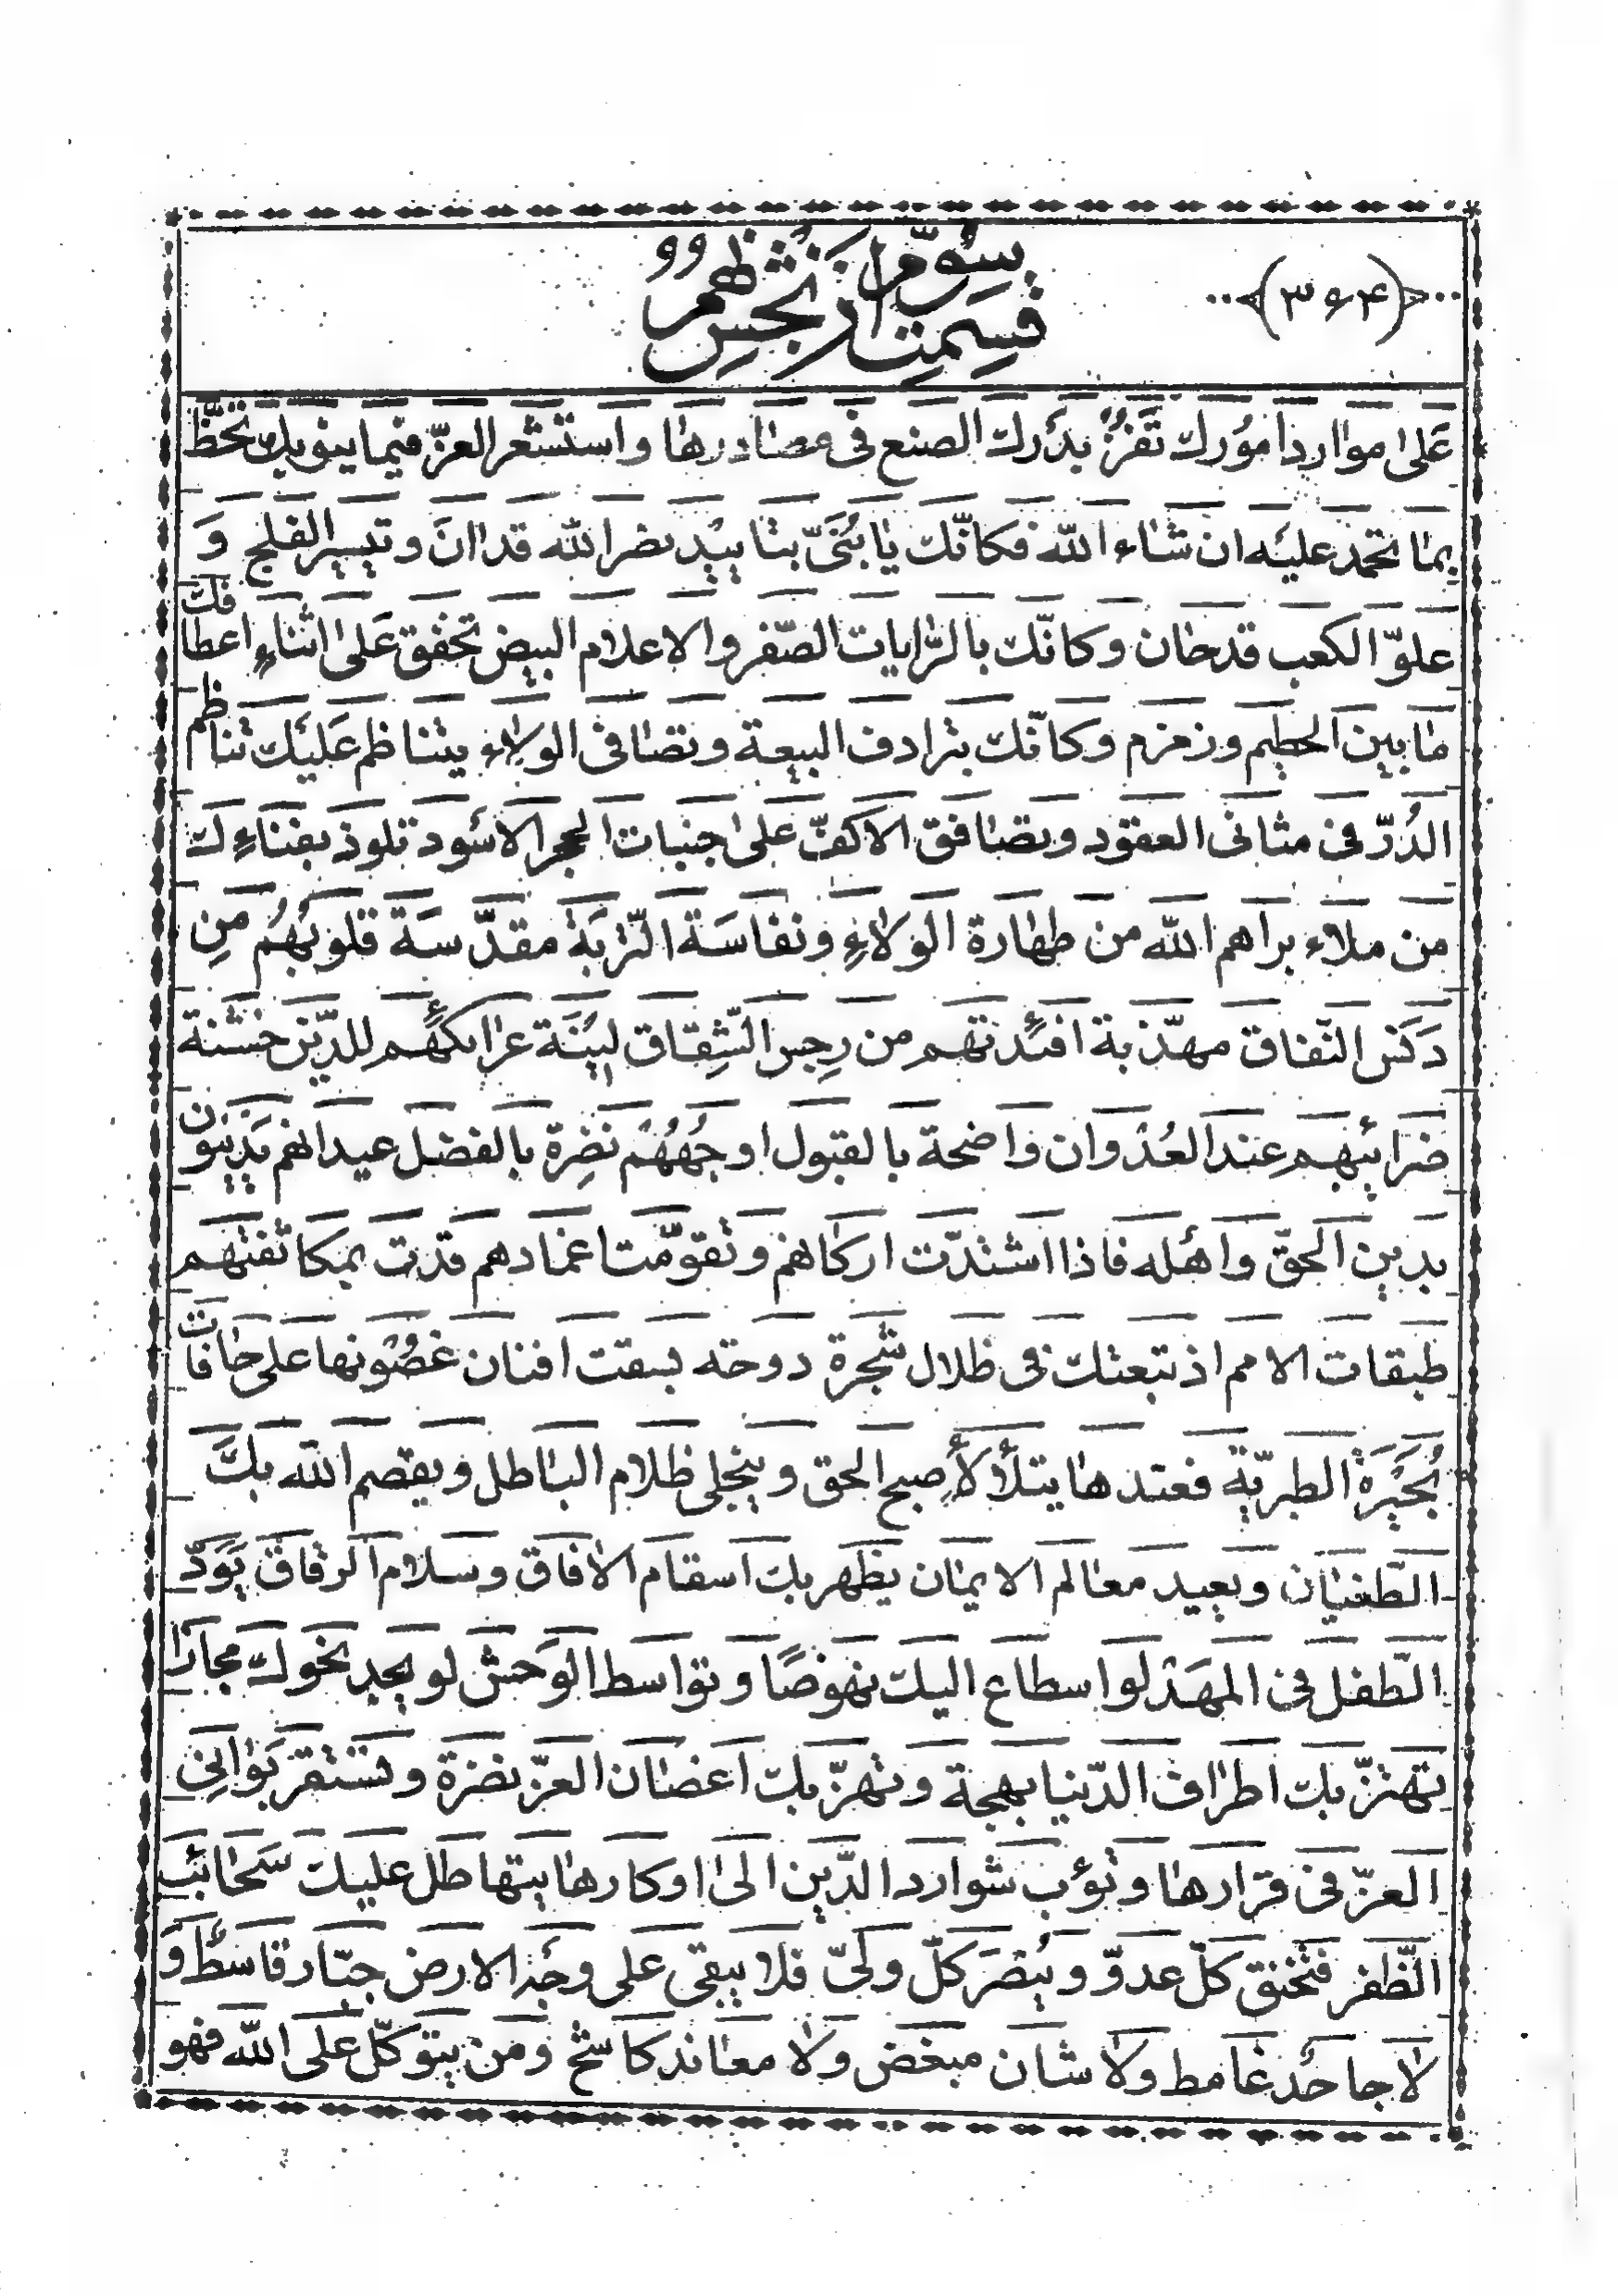 ﴿۳۶۴﴾
سوّم از بخش نهم
قسمت
على موارد امورك تفز بدرك الصنع فى مصادرها و استشعر العزّ فيما ينوبك تحظّ
بما تحمد عليه ان شاء الله فكانّك يا بُنىّ بتاييد نصر الله قد ان و تيسير الفلج وَ
علوّ الكعب قد حان و كانّك بالرّايات الصّفر و الاعلام البيض تخفق على اثناءِ اعطافك
ما بين الحطيم و زمزم و كانّك بترادف البيعة و تصافى الولاء يتناظم عليك تناظم
الدُرّ فى مثانى العقود و تصافق الاكفّ على جنبات الحجر الاسود تلوذ بفناءِك
من ملاء براهم الله من طهارة الولاءِ و نفاسَة التّربَة مقدّسَة قلوبُهُم مِن
دَنَس النّفاق مهذّبة افئدتهم من رِجس الشِّقاق ليّنَة عرائكهُم للدّين خشنة
ضرائبهم عند العُدْوان واضحة بالقبول اوجُهُهُم نضِرة بالفضل عيدانهم يَدينون
بدين الحقّ و اهله فاذا اشتدّت اركانهم و تقوّمت اعمادهم قدّت بمكاثفتهم
طبقات الامم اذ تبعتك فى ظلال شجرة دوحته بسقت افنان غصُونها على حافات
بُحَيْرَة الطبريّة فعندها يتلأْلأُ صبح الحق و ينجلى ظلام الباطل و يقصم الله بك
الطّغيان و يعيد معالم الايمان يظهر بك اسقام الافاق و سلام الرفاق يَوَدّ
الطّفل فى المهَدْ لو اسطاع اليك نهوضًا و تواسط الوَحش لو يجد نحوك مجازا
تهتزّ بك اطراف الدّنيا بهجة و تهزّ بك اغصان العزّ نضرة و تستقرّ بَوانِى
العزّ فى قرارها و تؤب شوارد الدّين الى اوكارها يتهاطل عليك سَحائب
الظّفر فتخنق كلّ عدوّ و يُنصَر كلّ ولىّ فلا يبقى على وجه الارض جبّار قاسط وَ
لا جاحد غامط و لا شان مبغض و لا معاند كاشح و من يتوكّل على الله فهو